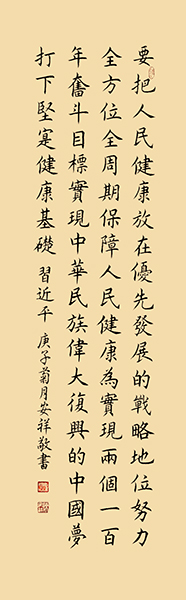 要把人民健康放在優先發展的戰略地位努力
全方位全周期保障人民健康為實現兩個一百
年奮斗目標實現中華民族偉大復興的中國夢
打下堅寔健康基礎 習近平 庚子菊月安祥敬書